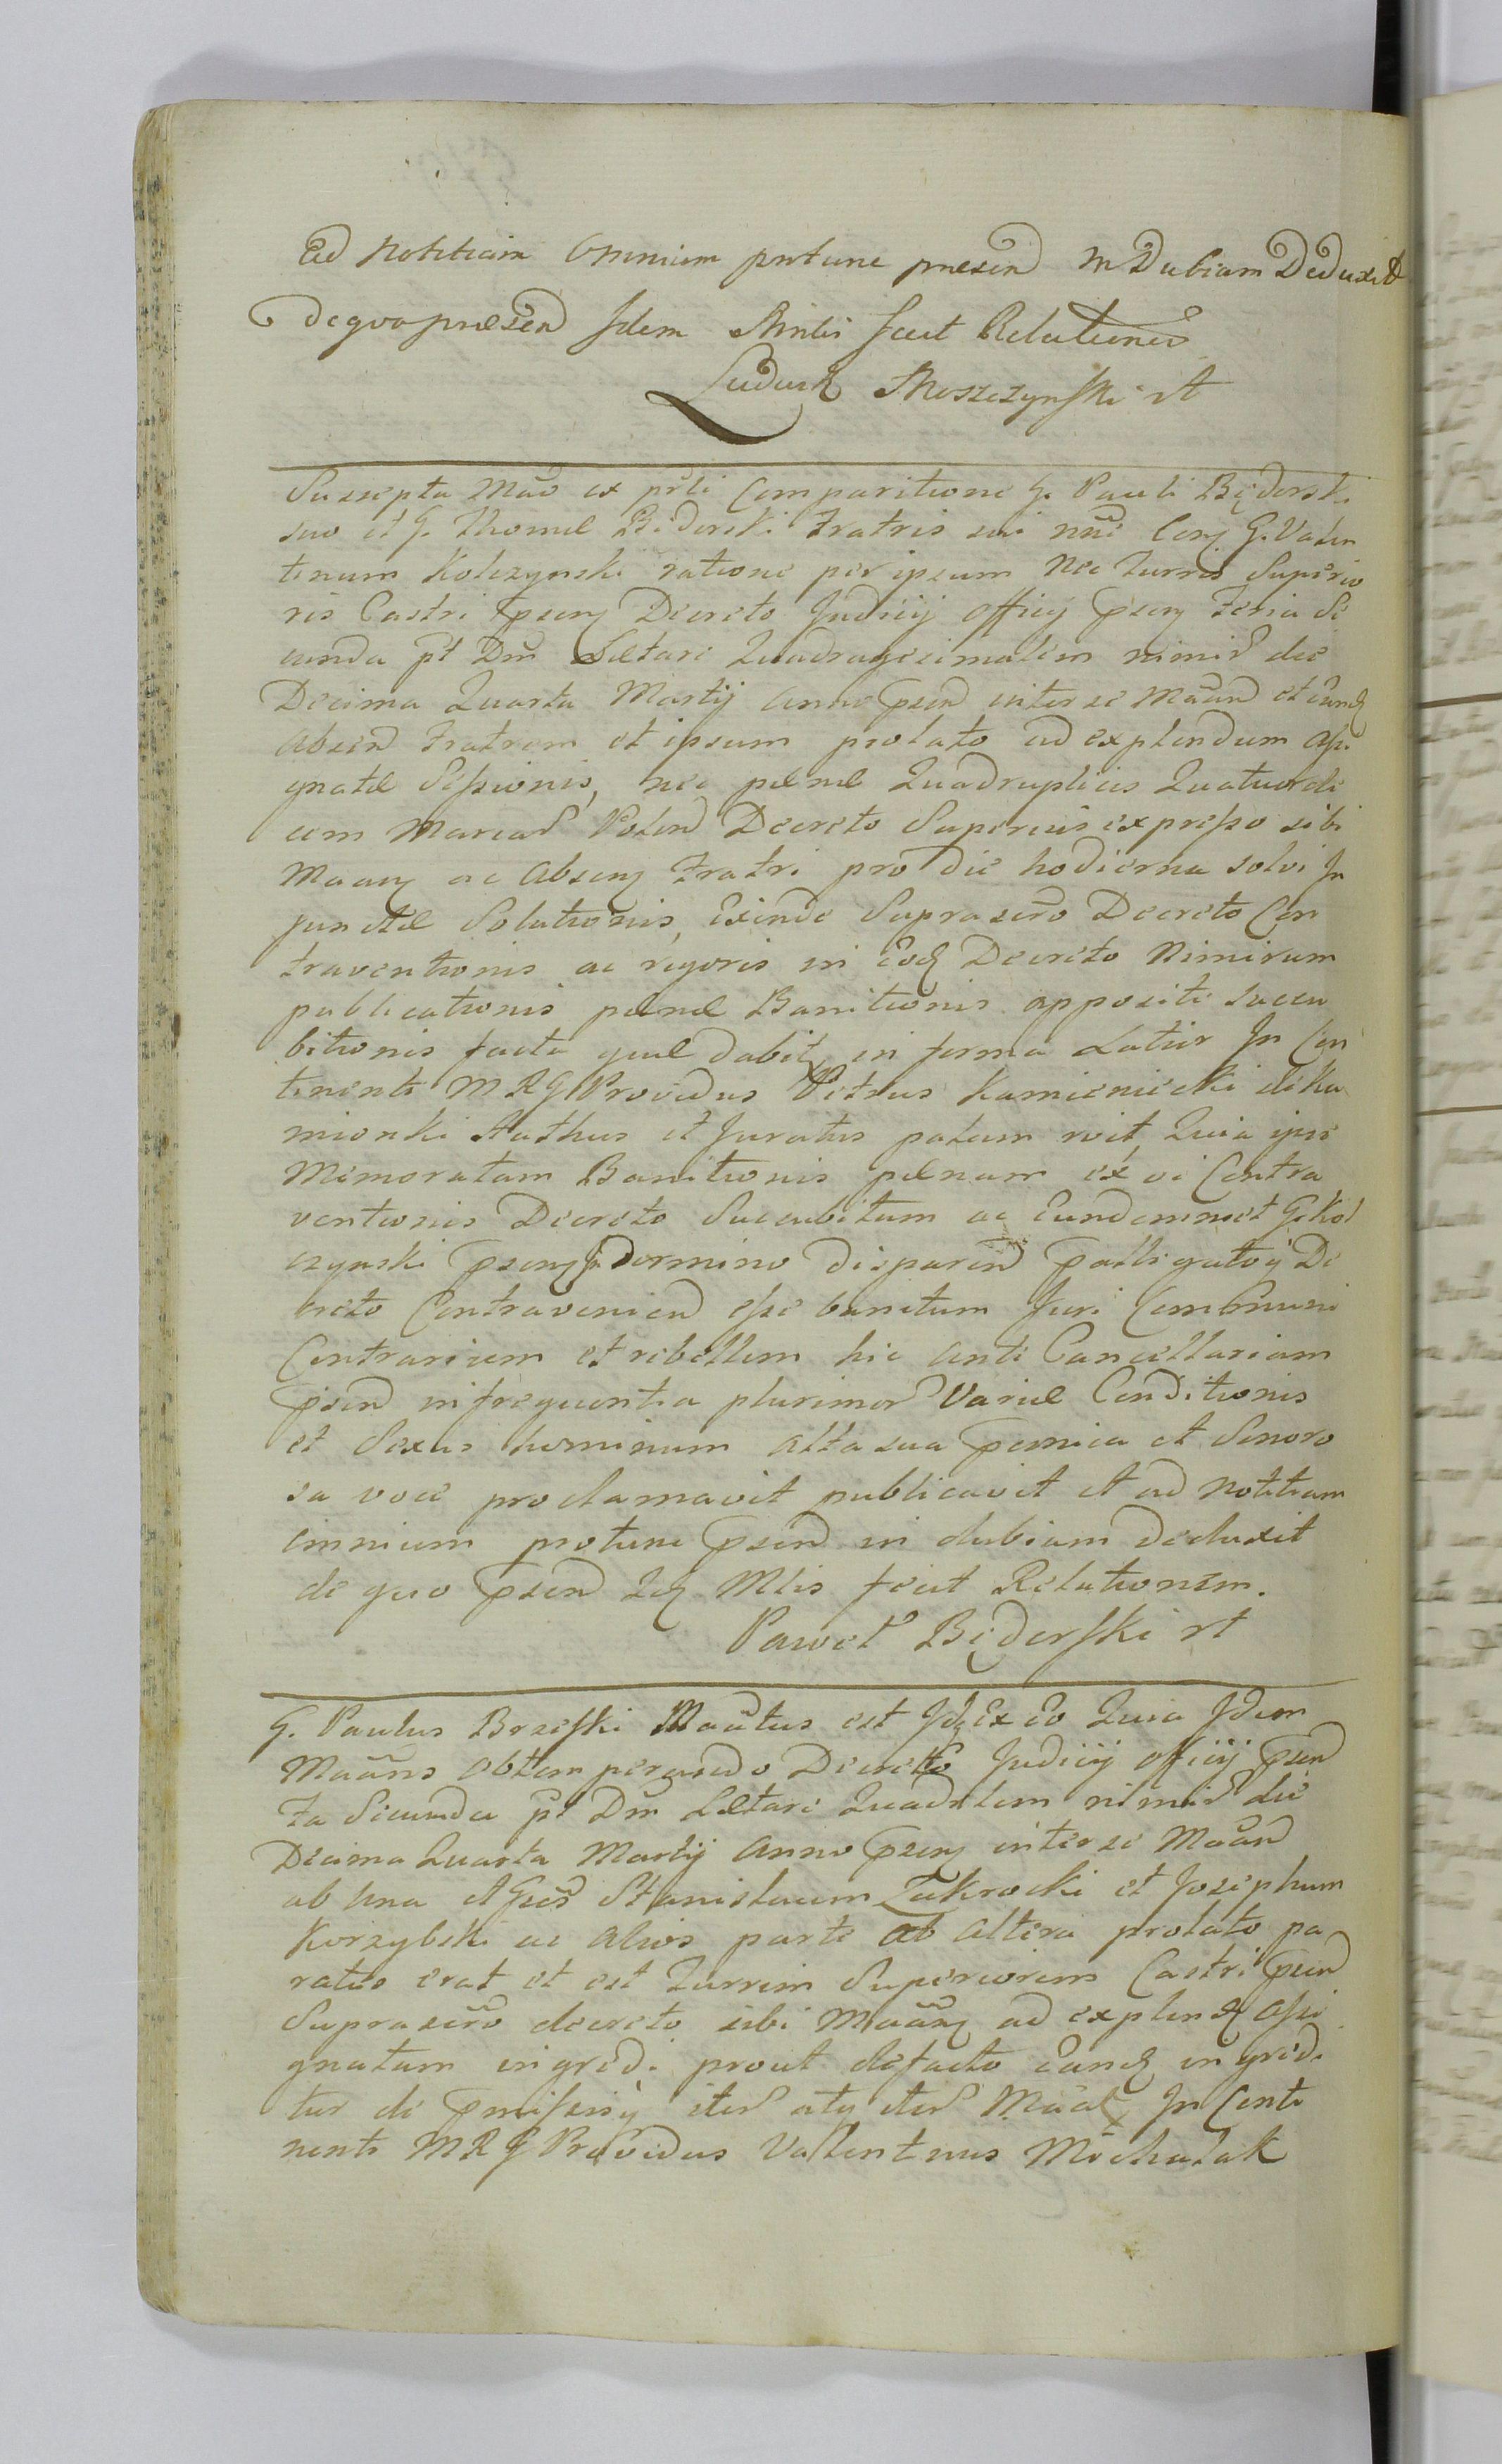 Ad Notitiam Omnium protunc praesen in Dubiam Deduxit
de quo praesen Idem Minlis fecit Relationem
Ludwik Moszczynski rt
Suscepta Mão ex prti Comparitione G. Pauli Będerski
suo et G. Thomæ Będerski Fratris sui nñe Conƺ G. Valen
tinum Kolczynski ratione per ipsum Nec Turris Superio
ris Castri psenƺ Decreto Judicij Officij psenƺ Feria Se
cunda pt Dm̃ Lætare Quadragesimalem nimir die
Decima Quarta Martij Anno psen inter se Mãan et eund
Absen Fratrem et ipsum prolato ad explendum Assi
gnatæ Sessionis, nec pænæ Quadruplicis Quatuorde
cem Marcar Polon Decreto Superius expresso sibi
Maanƺ ac Absenƺ Fratri pro die hodierna solvi In
junctæ Solutionis, Exinde Suprascro Decreto Con
traventionis ac rigoris in eod Decreto Nimirum
publicationis pænæ Banitionis appositi succu
bitionis facta quæ dabitƺ in forma Latior In Con
tinenti M R G Providus Petrus Kamieniecki de Ka
mionki Aathus et Juratus palam roit Quia ipse
Memoratam Banitionis pænam ex vi Contra
ventionis Decreto Succubitum ac Eundemmet G. Kol
czynski psenƺ in Termino disparen palligatoÿ De
creto Contravenien esse banitum Juri Communi
Contrarium et rebellem hic ante Cancellariam
psen in frequentia plurimor Variæ Conditionis
et Sexus hominum alta sua pernica et Sonoro
sa voce proclamavit publicavit et ad Notitiam
omnium protunc psen in dubiam deduxit
de quo psen Idƺ Mlis fecit Relationem.
Paweł Będerski rt
G. Paulus Brzeski Maãtus est Idƺ Ex Eo Quia Idem
Maãns Obtemperando Decreto Judicij Officij psen
Fa Secunda pt Dm̃ Lætare Quadrlem nimir die
Decima Quarta Martij Anno psenƺ inter se Maãn
ab una et Gsos Stanislaum Zakrocki et Josephum
Korzybski ac Alios parte ab altera prolato pa
ratus erat et est Turrim Superiorem Castri psen
Suprascro decreto sibi Maãnƺ ad explend Assi
gnatam ingredi prout defacto eand ingredi
tur de pmissisÿ iter atƺ iter Maãt In Conti
nenti M R G Providus Vallentinus Michalak